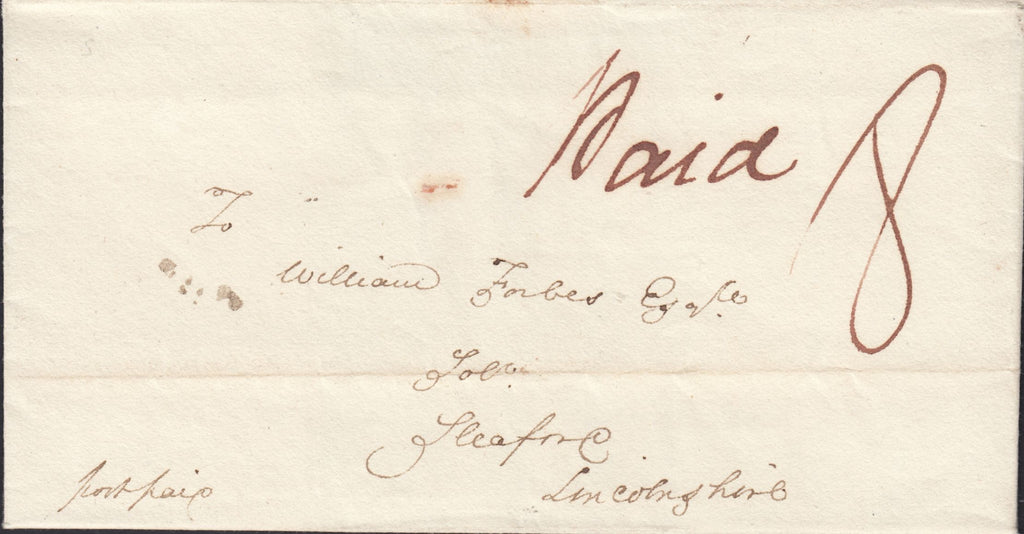 Paid 8
To
William Forbes Esqre
Solr.
Sleaford
post paid
Lincolnshire